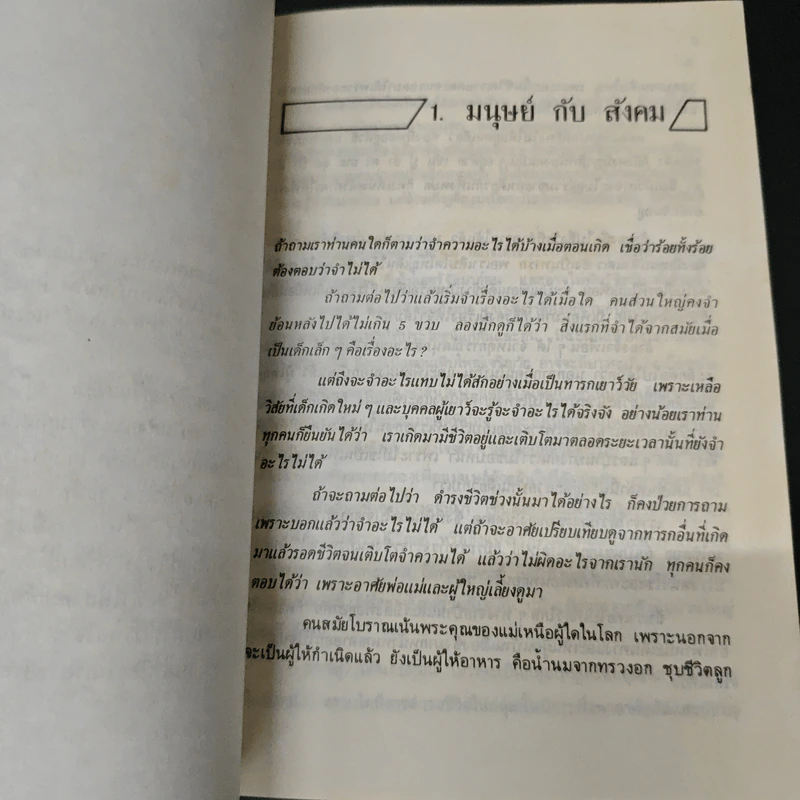 1. มนุษย์ กับ สังคม
ถ้าถามเราท่านคนใดก็ตามว่าจำความอะไรได้บ้างเมื่อตอนเกิด เชื่อว่าร้อยทั้งร้อย
ต้องตอบว่าจำไม่ได้
ถ้าถามต่อไปว่าแล้วเริ่มจำเรื่องอะไรได้เมื่อใด คนส่วนใหญ่คงจำ
ย้อนหลังไปได้ไม่เกิน 5 ขวบ ลองนึกดูก็ได้ว่า สิ่งแรกที่จำได้จากสมัยเมื่อ
เป็นเด็กเล็ก ๆ คือเรื่องอะไร?
แต่ถึงจะจำอะไรแทบไม่ได้สักอย่างเมื่อเป็นทารกเยาว์วัย เพราะเหลือ
วิสัยที่เด็กเกิดใหม่ ๆ และบุคคลผู้เยาว์จะรู้จะจำอะไรได้จริงจัง อย่างน้อยเราท่าน
ทุกคนก็ยืนยันได้ว่า เราเกิดมามีชีวิตอยู่และเติบโตมาตลอดระยะเวลานั้นที่ยังจำ
อะไรไม่ได้
ถ้าจะถามต่อไปว่า ดำรงชีวิตช่วงนั้นมาได้อย่างไร ก็คงป่วยการถาม
เพราะบอกแล้วว่าจำอะไรไม่ได้ แต่ถ้าจะอาศัยเปรียบเทียบดูจากทารกอื่นที่เกิด
มาแล้วรอดชีวิตจนเติบโตจำความได้ แล้วว่าไม่ผิดอะไรจากเรานัก ทุกคนก็คง
ตอบได้ว่า เพราะอาศัยพ่อแม่และผู้ใหญ่เลี้ยงดูมา
คนสมัยโบราณเน้นพระคุณของแม่เหนือผู้ใดในโลก เพราะนอกจาก
จะเป็นผู้ให้กำเนิดแล้ว ยังเป็นผู้ให้อาหาร คือน้ำนมจากทรวงอก ชุบชีวิตลูก